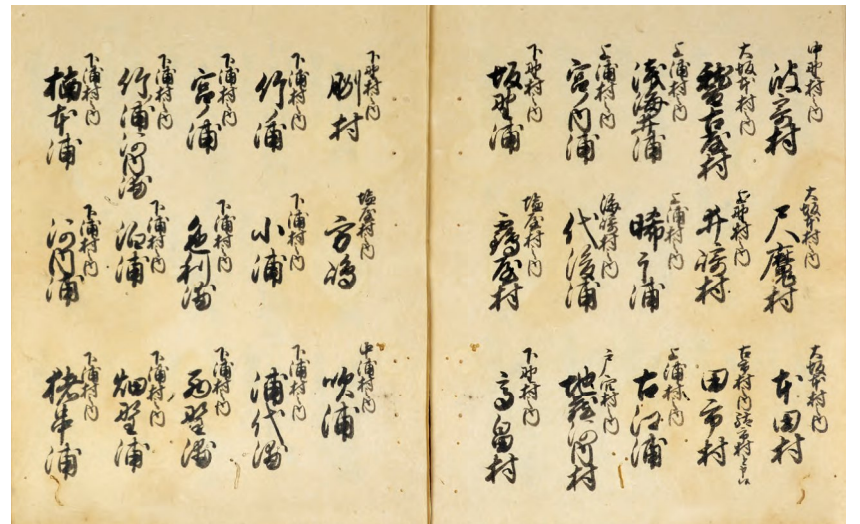 中野村之内
波寄村
大坂本村之内
尺魔村
大坂本村之内
大坂本村之内
稽古屋村
上野村之内
井崎村
田市村
上浦村之内
浅海井浦
上浦村之内
晞干浦
上浦村之内
古江浦
上浦村之内
宮ノ内浦
海崎村之内
代後浦
戸穴村之内
地蔵河内村
下野村之内
坂野浦
塩屋村之内
鶴屋村
下野村之内
高畠村
下野村之内
塩屋村之内
方嶋
中浦村之内
吹浦
下浦村之内
竹ノ浦
下浦村之内
小浦
下浦村之内
浦代浦
下浦村之内
宮ノ浦
下浦村之内
色利浦
下浦村之内
西野浦
下浦村之内
竹ノ浦河内浦
下浦村之内
下浦村之内
畑野浦
下浦村之内
楠本浦
下浦村之内
河内浦
下浦村之内
猪串浦